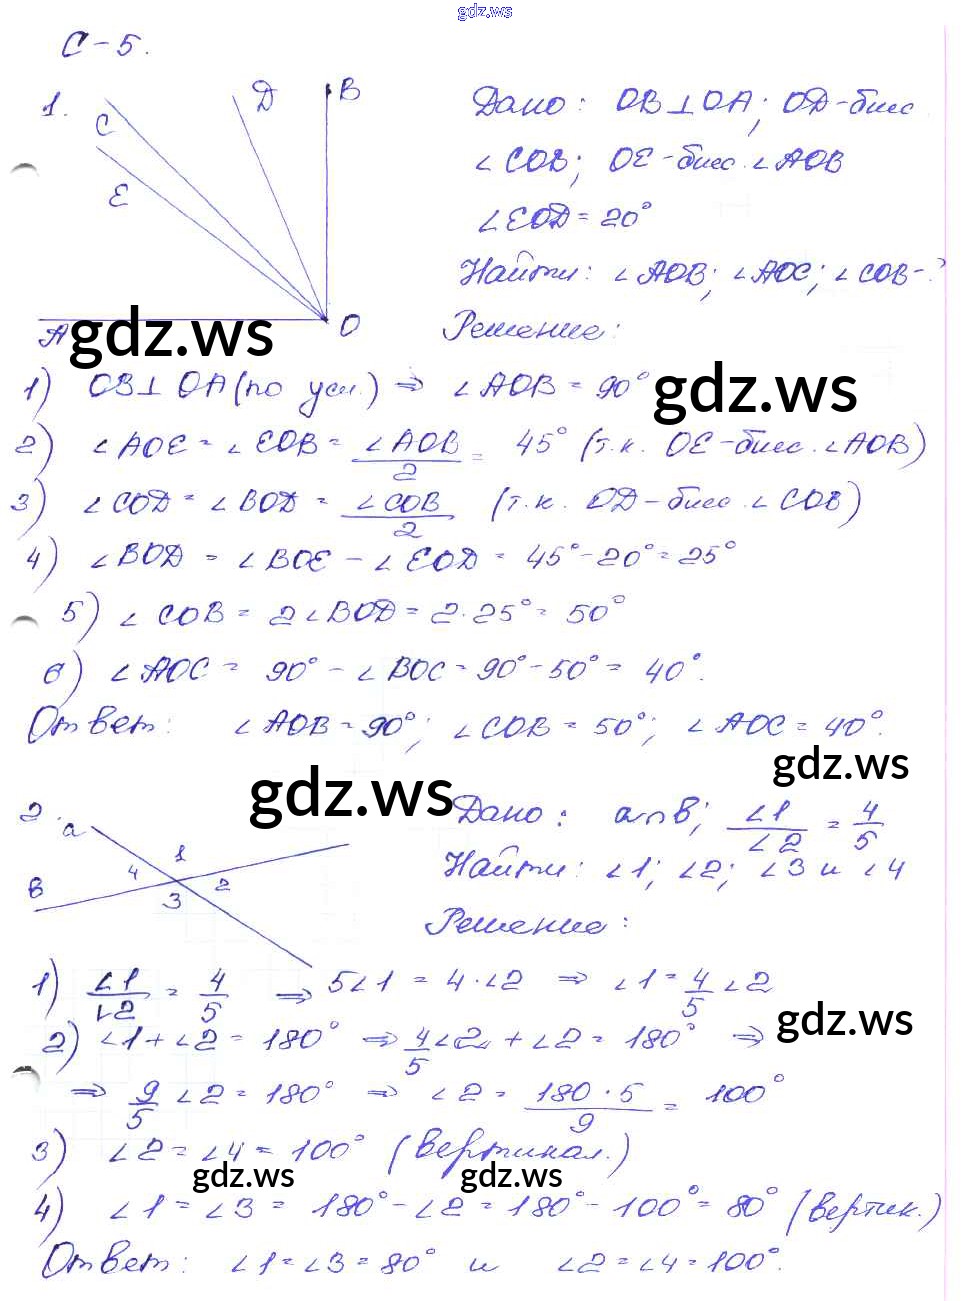 gdz.ws
С-5.
1.
C
E
D
B
A
O
Дано: OB⊥OA; OD-бисс
∠COB; OE-бисс. ∠AOB
∠EOD = 20°
Найти: ∠AOB; ∠AOC; ∠COB-?
Решение:
gdz.ws
1) OB⊥OA (по усл.) ⇒ ∠AOB = 90°
gdz.ws
2) ∠AOE = ∠EOB = ∠AOB/2 = 45° (т.к. OE-бисс. ∠AOB)
3) ∠COD = ∠BOD = ∠COB/2 (т.к. OD-бисс. ∠COB)
4) ∠BOD = ∠BOE - ∠EOD = 45°-20°=25°
5) ∠COB = 2∠BOD = 2·25° = 50°
6) ∠AOC = 90° - ∠BOC = 90°-50° = 40°.
Ответ: ∠AOB = 90°; ∠COB = 50°; ∠AOC = 40°.
gdz.ws
gdz.ws
2.
a
в
1
4
2
3
Дано: a∩в; ∠1/∠2 = 4/5
Найти: ∠1; ∠2; ∠3 и ∠4
Решение:
1) ∠1/∠2 = 4/5 ⇒ 5∠1 = 4·∠2 ⇒ ∠1 = 4/5 ∠2
gdz.ws
2) ∠1+∠2 = 180° ⇒ 4/5∠2 + ∠2 = 180° ⇒
⇒ 9/5 ∠2 = 180° ⇒ ∠2 = 180·5/9 = 100°
3) ∠2 = ∠4 = 100° (вертикал.)
gdz.ws
gdz.ws
4) ∠1 = ∠3 = 180° - ∠2 = 180° - 100° = 80° (вертик.)
Ответ: ∠1=∠3=80° и ∠2=∠4=100°.